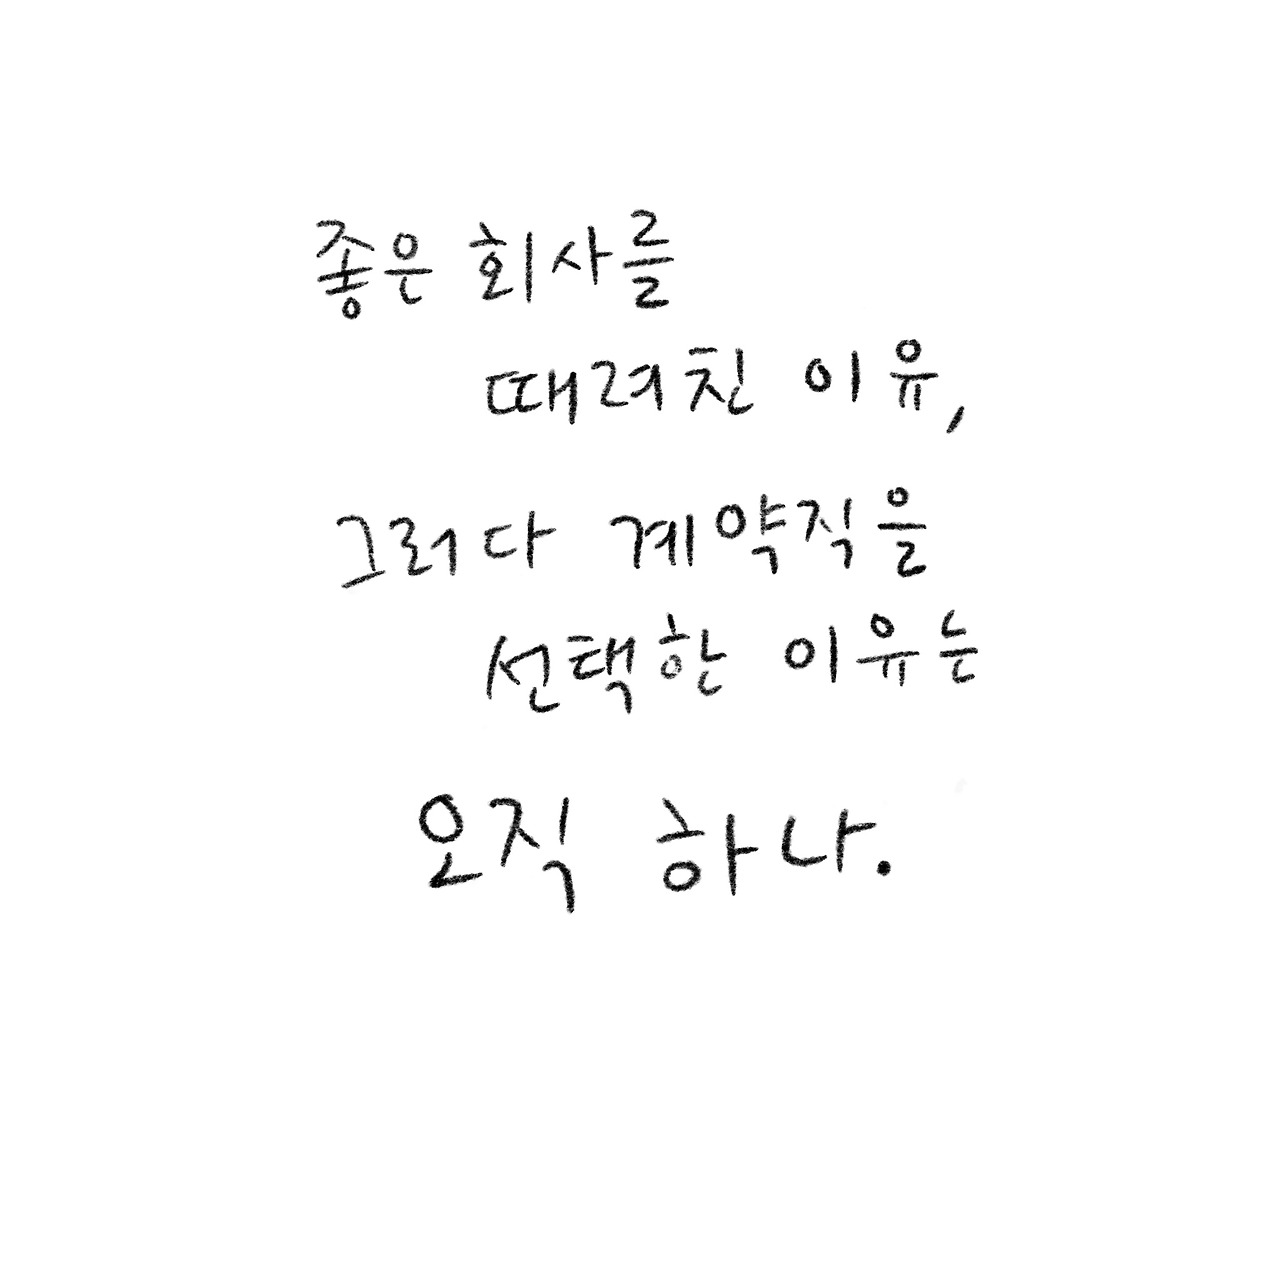 좋은 회사를
때려친 이유,
그러다 계약직을
선택한 이유는
오직 하나.